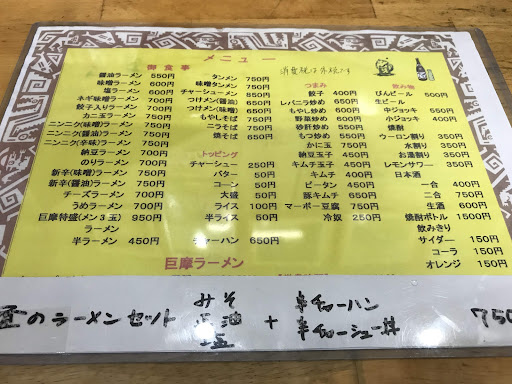 メニュー
御食事
消費税子 外税です
醤油ラーメン 550円
味噌ラーメン 600円
塩ラーメン 600円
ネギ味噌ラーメン 700円
餃子入りラーメン 700円
カニ玉ラーメン 750円
ニンニク(味噌)ラーメン 750円
ニンニク(醤油)ラーメン 750円
ニンニク(辛味)ラーメン 750円
納豆ラーメン 700円
のりラーメン 700円
新辛(味噌)ラーメン 750円
新辛(醤油)ラーメン 750円
チーズラーメン 700円
うめラーメン 700円
巨摩特盛(メン3玉) 950円
ラーメン
半ラーメン 450円
タンメン 750円
味噌タンメン 750円
チャーシューメン 850円
つけメン(醤油) 650円
つけメン(味噌) 650円
もやしそば 750円
ニラそば 750円
焼そば 650円
トッピング
チャーシュー 250円
バター 50円
コーン 50円
大盛 50円
ライス 100円
半ライス 50円
チャーハン 650円
つまみ
餃子 400円
レバニラ炒め 650円
野菜炒め 600円
もやし炒め 600円
砂肝炒め 650円
もつ炒め 550円
かに玉 750円
納豆玉子 450円
キムチ玉子 450円
キムチ 400円
ピータン 450円
豚キムチ 650円
マーボー豆腐 750円
冷奴 250円
飲み物
びんビール 500円
生ビール
中ジョッキ 500円
小ジョッキ 400円
焼酎
ウーロン割り 350円
水割り 350円
お湯割り 350円
レモンサワー 350円
日本酒
一合 400円
二合 750円
生酒 600円
焼酎ボトル 1500円
飲みきり
サイダー 150円
コーラ 150円
オレンジ 150円
巨摩ラーメン
のラーメンセット みそ 油 塩 + 半チャーハン 半チャーシュー丼 750